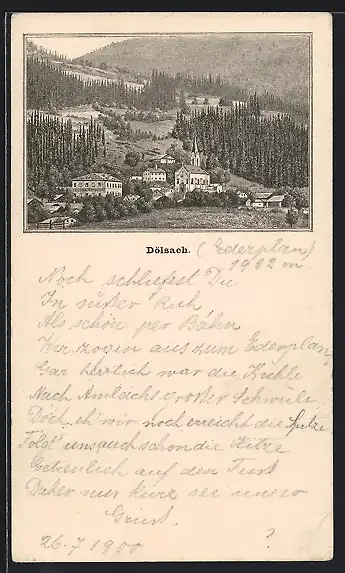 Dölsach. (Ederplan)
1982 m.
Noch schliefest Du
In süßer Ruh
Als schön per Bahn
Wir zogen aus zum Ederplan,
Gar herrlich war die Kühle
Nach Amlachs großer Schwüle
Doch eh' wir noch erreicht die Spitze
Folgt uns auch schon die Hitze
Getreulich auf den
Daher nur kurz sei unser
Gruß.
26-7 1900 ?